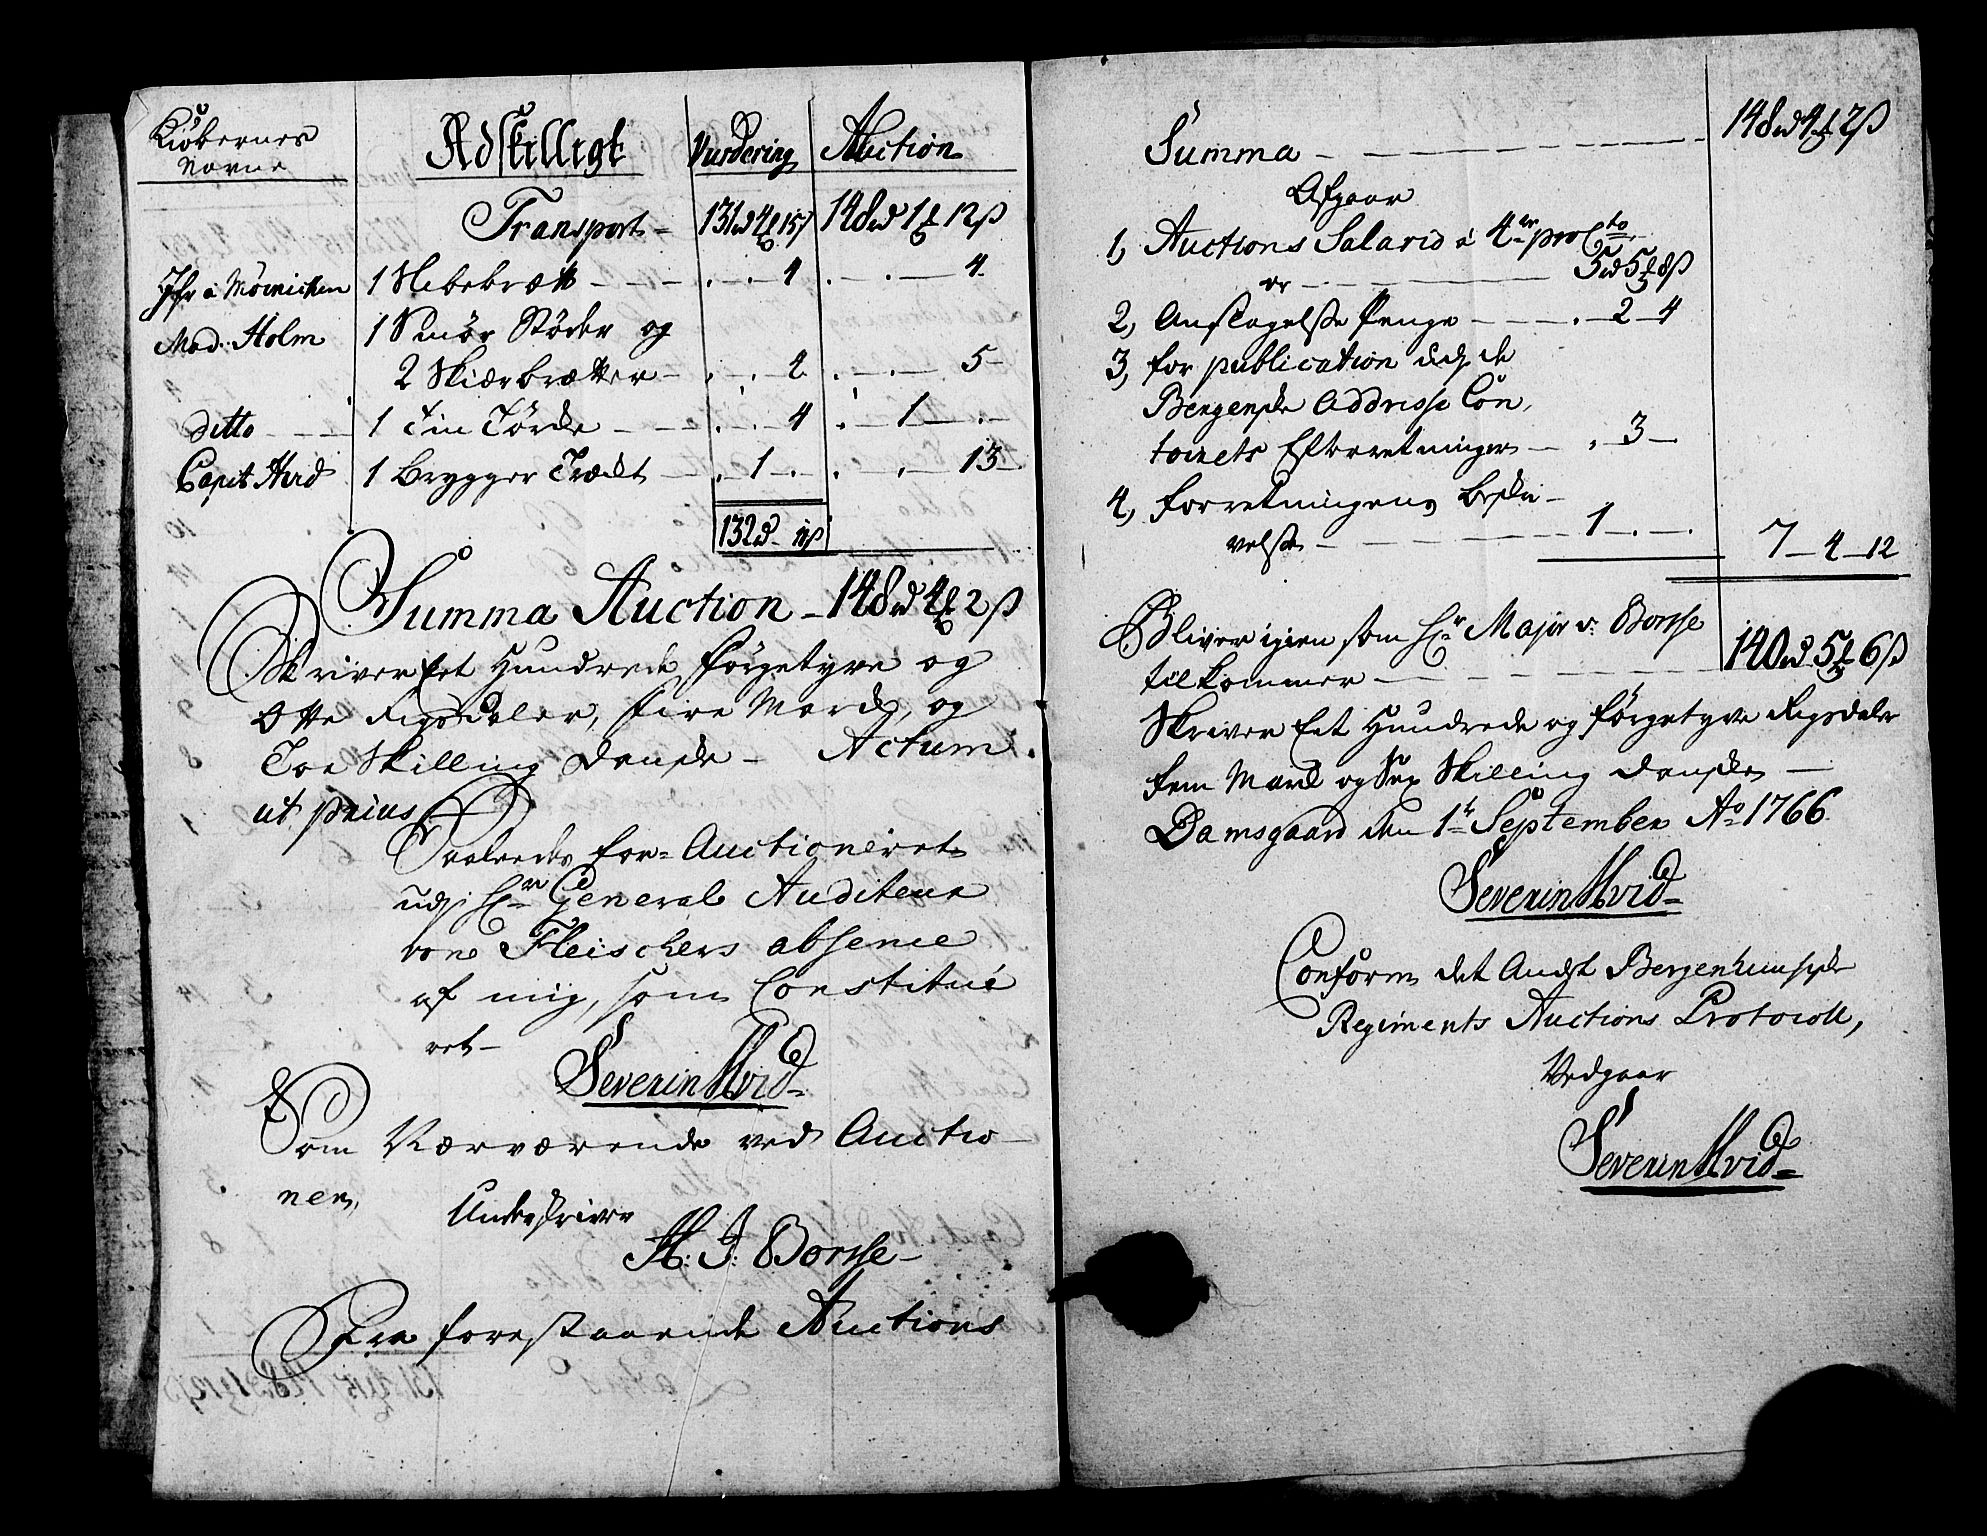 Kiøbernes
Navne
Adskilligt
Vurdering
Auction
Transport – 131rd 4 15ß 148rd 1 12ß
Jfr a Møinichen 1 Hebebræt – . – . – 4 . – . – 4
Mad. Holm 1 Smør Støder og
2 Skiærbrætter – . – . 2 . – . – 5 –
ditto – 1 Tin Tørde – . – . – 4 . – 1 – .
Capit Hvid 1 Brygger Trædt – . – 1 – . . – . – 13
132rd – ß
Summa Auction – 148rd 4 2ß
Skriver Eet Hundrede,førgetyve og
Otte Rigsdaler, fire Mark, og
Toe Skilling Danske – Actum
ut prius
Saaledes for- Auctioneret
udj Hr General Auditeur
von Fleischers absence
af mig, som Constitue
ret –
Severin Hvid
Som Nærværende ved Auctio –
nen,
Underskriver
H: J: Borsse –
Fra forestaaende Auctions
Summa – 148rd 4 2ß
Afgaar
1, Auctions Salario à 4er pro Cto
er – 5rd 5 8ß
2, Anslagelse Penge – . – 2 – 4
3, for publication udj de
Bergenske Addresse Con,
toirets Efterretninger – . – 3 –
4, Forretningens beskri –
velse – 1 – . – .
7 – 4 – 12
Bliver igien som Hr Major v: Borsse
tilkommer – 140rd 5 6ß
Skriver Eet Hundrede og førgetyve Rigsdaler
fem Mark og Sex Skilling Danske –
Damsgaard den 1te September Ao 1766.
Severin Hvid
Conform det Andet Bergenhuusiske
Regiments Auctions Protocoll,
Vedgaar
Severin Hvid